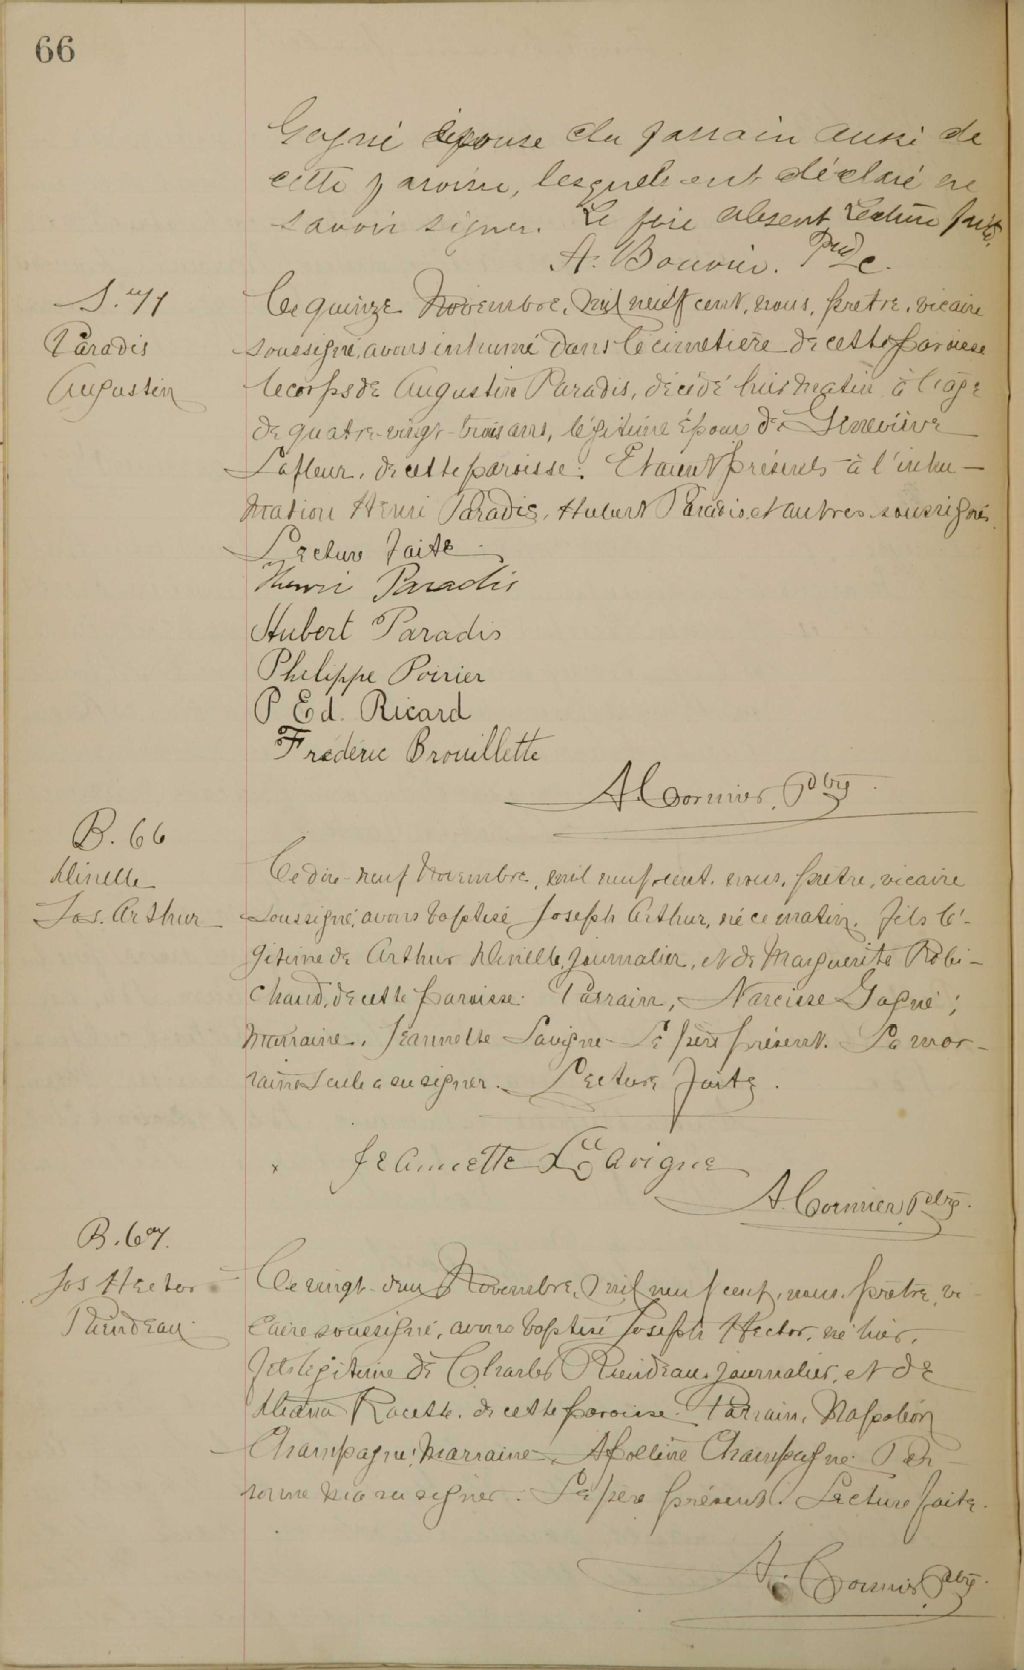 66
Gagné épouse du parrain aussi de
cette paroisse, lesquels ont déclaré ne
savoir signer. Le père absent Lecture faite.
A. Bouvier. Ptre
S. 71
Paradis
Augustin
Ce quinze Novembre, mil neuf cent, nous, prêtre, vicaire
soussigné, avons inhumé dans le cimetière de cette paroisse
le corps de Augustin Paradis, décédé hier matin à l'âge
de quatre-vingt-trois ans, légitime époux de Geneviève
Lafleur, de cette paroisse. Etaient présents à l'inhu-
mation Henri Paradis, Hubert Paradis et autres soussignés.
Lecture faite.
Henri Paradis
Hubert Paradis
Philippe Poirier
P Ed. Ricard
Frédéric Brouillette
A. Cormier, Ptre
B. 66
Minelle
Jos. Arthur
Ce dix-neuf Novembre, mil neuf cent, nous, prêtre, vicaire
soussigné, avons baptisé Joseph Arthur, né ce matin, fils lé-
gitime de Arthur Minelle, journalier, et de Marguerite Robi-
chaud, de cette paroisse. Parrain, Narcisse Gagné;
Marraine, Jeannette Lavigne. Le père présent. La mar-
raine seule a su signer. Lecture faite.
Jeannette Lavigne
A. Cormier, Ptre.
B. 67.
Jos Hector
Riendeau
Ce vingt-deux Novembre, mil neuf cent, nous, prêtre, vi-
caire soussigné, avons baptisé Joseph Hector, né hier,
fils légitime de Charles Riendeau, journalier, et de
Racette, de cette paroisse. Parrain, Napoléon
Champagne; Marraine, Apolline Champagne. Per-
sonne n'a su signer. Le père présent. Lecture faite.
A. Cormier, Ptre.